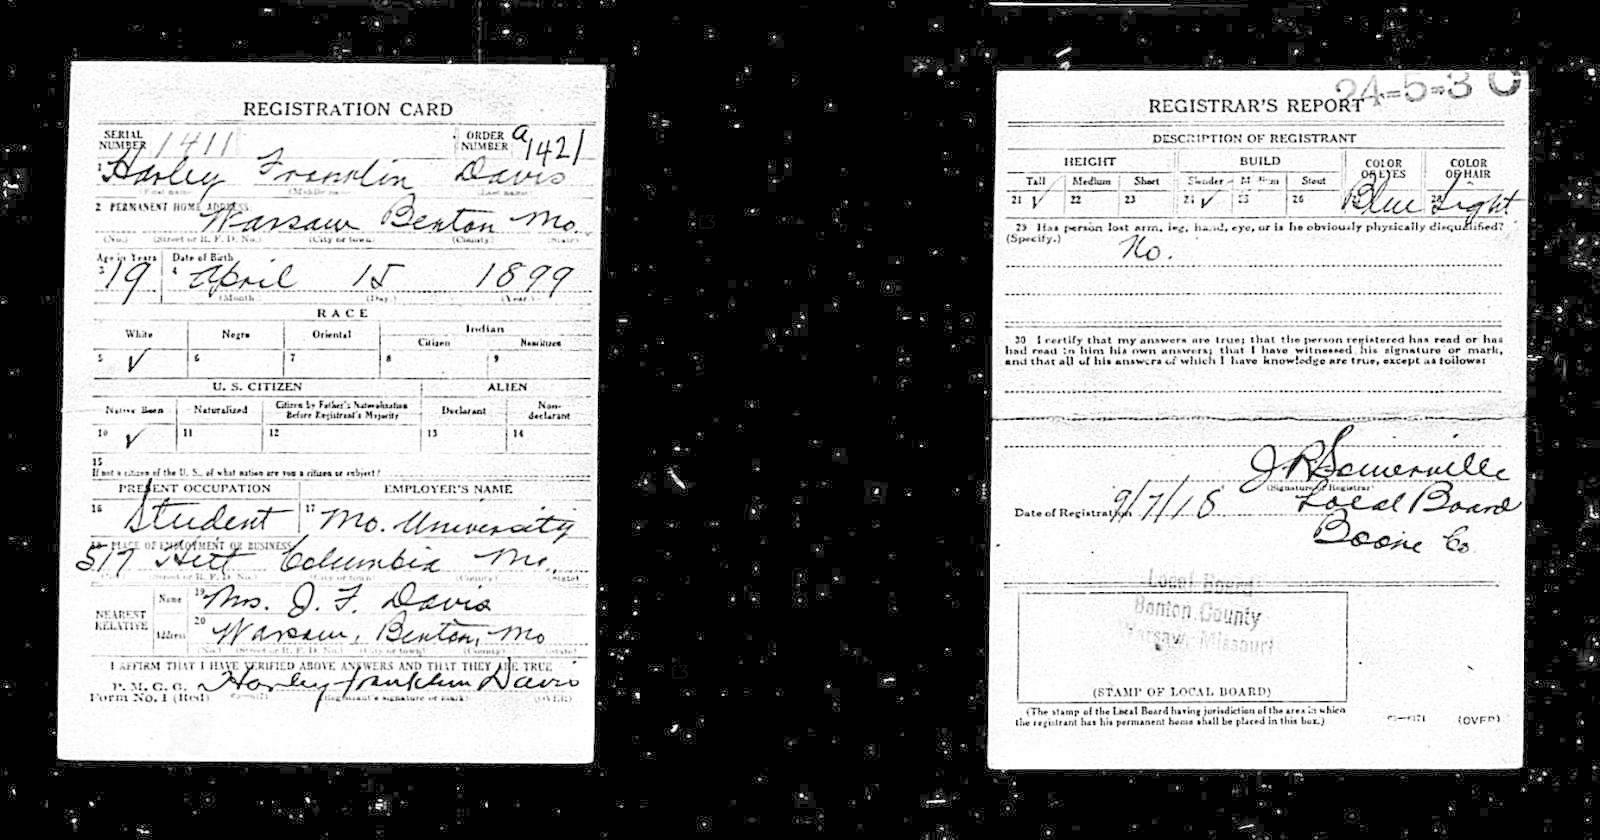 REGISTRATION CARD
SERIAL NUMBER 1411 ORDER NUMBER a 1421
1 Harley Franklin Davis
(First name) (Middle name) (Last name)
2 PERMANENT HOME ADDRESS
Warsaw Benton Mo.
(No.) (Street or R. F. D. No.) (City or town) (County) (State)
Age in Years Date of Birth
3 19 4 April 15 1899
(Month) (Day) (Year)
RACE
White Negro Oriental Indian
Citizen Noncitizen
5 ✓ 6 7 8 9
U. S. CITIZEN ALIEN
Native Born Naturalized Citizen by Father's Naturalization Before Registrant's Majority Declarant Non-declarant
10 ✓ 11 12 13 14
15
If not a citizen of the U. S., of what nation are you a citizen or subject?
PRESENT OCCUPATION EMPLOYER'S NAME
16 Student 17 Mo. University
18 PLACE OF EMPLOYMENT OR BUSINESS
517 Hitt Columbia Mo.
(No.) (Street or R. F. D. No.) (City or town) (County) (State)
NEAREST RELATIVE
Name 19 Mrs. J. F. Davis
Address 20 Warsaw, Benton, Mo
(No.) (Street or R. F. D. No.) (City or town) (County) (State)
I AFFIRM THAT I HAVE VERIFIED ABOVE ANSWERS AND THAT THEY ARE TRUE
P. M. G. O.
Form No. 1 (Red) Harley Franklin Davis
(Registrant's signature or mark) (OVER)
24-5-3 C
REGISTRAR'S REPORT
DESCRIPTION OF REGISTRANT
HEIGHT BUILD COLOR OF EYES COLOR OF HAIR
Tall Medium Short Slender Medium Stout
21 ✓ 22 23 24 ✓ 25 26 Blue 28 Light
29 Has person lost arm, leg, hand, eye, or is he obviously physically disqualified?
(Specify.) No.
30 I certify that my answers are true; that the person registered has read or has
had read to him his own answers; that I have witnessed his signature or mark,
and that all of his answers of which I have knowledge are true, except as follows:
J R Somerville
(Signature of Registrar)
Date of Registration 9/7/18 Local Board
Boone Co.
Local Board
Benton County
Warsaw, Missouri
(STAMP OF LOCAL BOARD)
(The stamp of the Local Board having jurisdiction of the area in which
the registrant has his permanent home shall be placed in this box.)
(OVER)